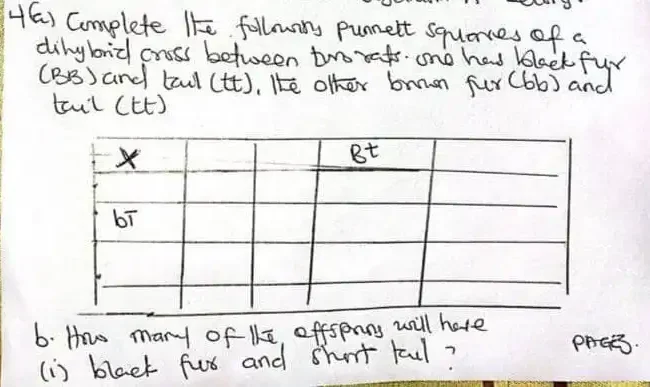 4(a) Complete the following punnett squares of a
dihybrid cross between two rats. one has black fur
(BB) and tail (tt), the other brown fur (bb) and
tail (tt)
X Bt
bT
b. How many of the offsprings will have
(i) black fur and short tail?
PAGE3.